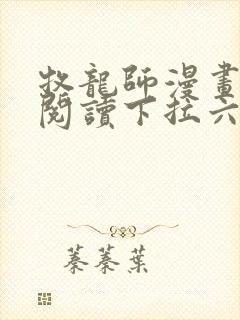 牧龍師漫畫
閱讀下拉六
蓁蓁葉